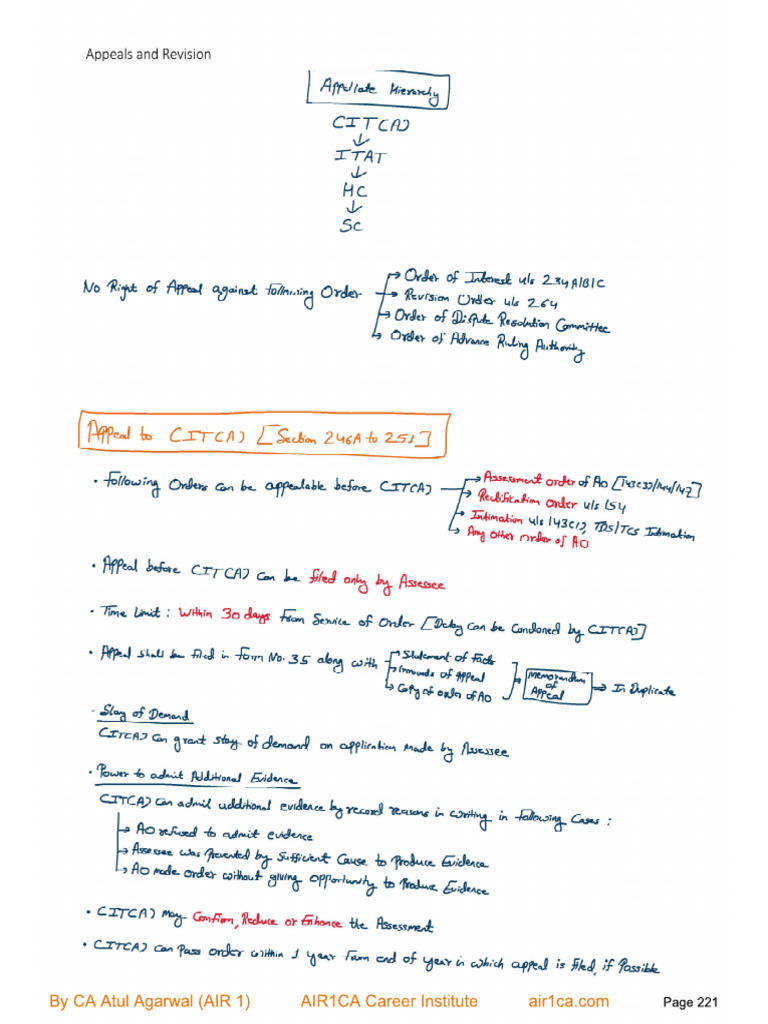 Appeals and Revision
Appellate Hierarchy
CIT(A)
↓
ITAT
↓
HC
↓
SC
No Right of Appeal against following Order
→ Order of Interest u/s 234A/B/C
→ Revision Order u/s 264
→ Order of Dispute Resolution Committee
→ Order of Advance Ruling Authority
Appeal to CIT(A) [Section 246A to 251]
• Following Orders can be appealable before CIT(A)
→ Assessment order of AO [143(3)/144/147]
→ Rectification order u/s 154
→ Intimation u/s 143(1), TDS/TCS Intimation
→ Any other order of AO
• Appeal before CIT(A) can be filed only by Assessee
• Time Limit: Within 30 days from Service of Order [Delay can be Condoned by CIT(A)]
• Appeal shall be filed in form No. 35 along with
→ Statement of Facts
→ Grounds of Appeal
→ Copy of order of AO
Memorandum of Appeal → In Duplicate
• Stay of Demand
CIT(A) Can grant stay of demand on application made by Assessee
• Power to admit Additional Evidence
CIT(A) Can admit additional evidence by record reasons in writing in following Cases:
→ AO refused to admit evidence
→ Assessee was Prevented by Sufficient Cause to Produce Evidence
→ AO made order without giving opportunity to Produce Evidence
• CIT(A) may Confirm, Reduce or Enhance the Assessment
• CIT(A) can pass order within 1 year from end of year in which appeal is filed, if Possible
By CA Atul Agarwal (AIR 1) AIR1CA Career Institute air1ca.com Page 221